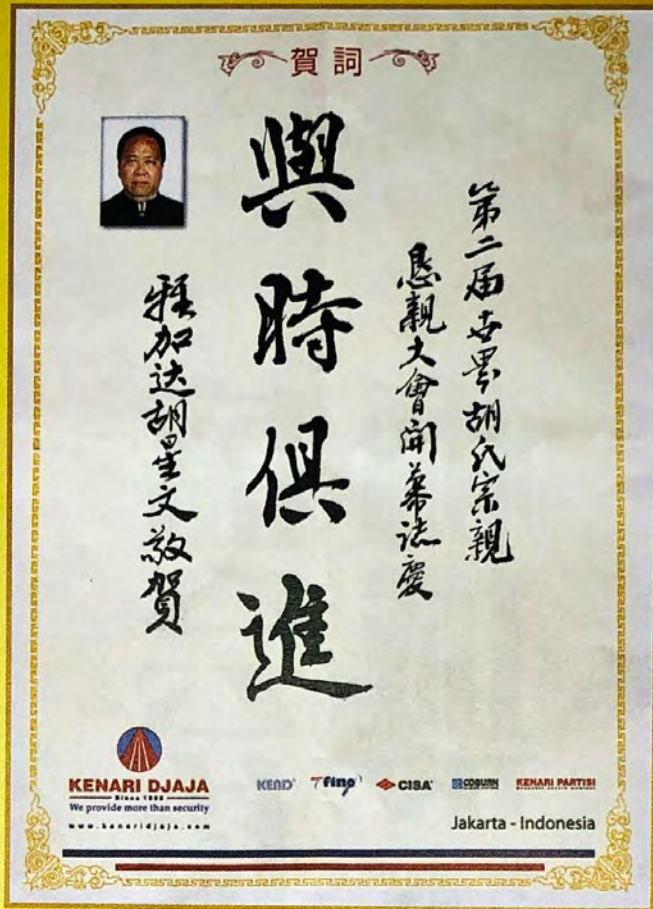 賀詞
第二届世界胡氏宗親
恳親大會開幕誌慶
與時俱進
雅加达胡星文敬賀
KENARI DJAJA
Since 1965
We provide more than security
www.kenaridjaja.com
KEND
fino
CISA
COBURN
KENARI PARTISI
Jakarta - Indonesia